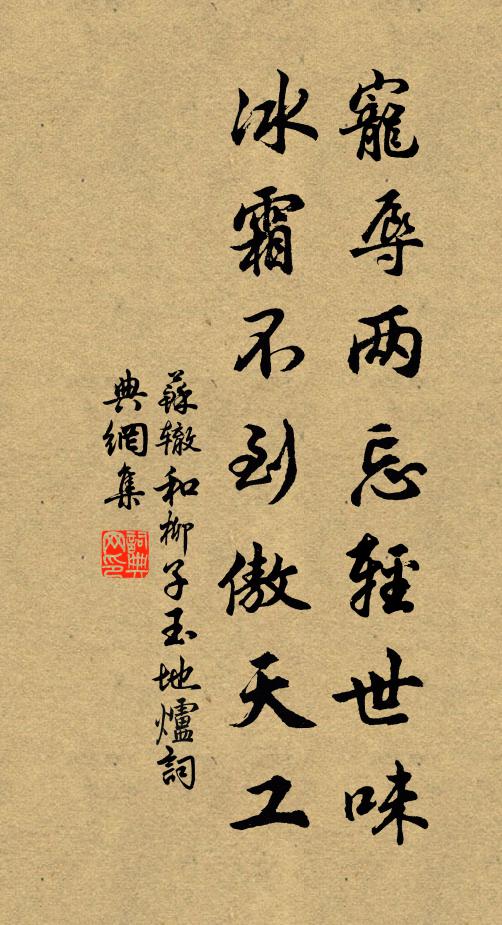 寵辱两忘輕世味
冰霜不到傲天工
蘇轍和柳子玉地爐詞
典網集
詞典网印